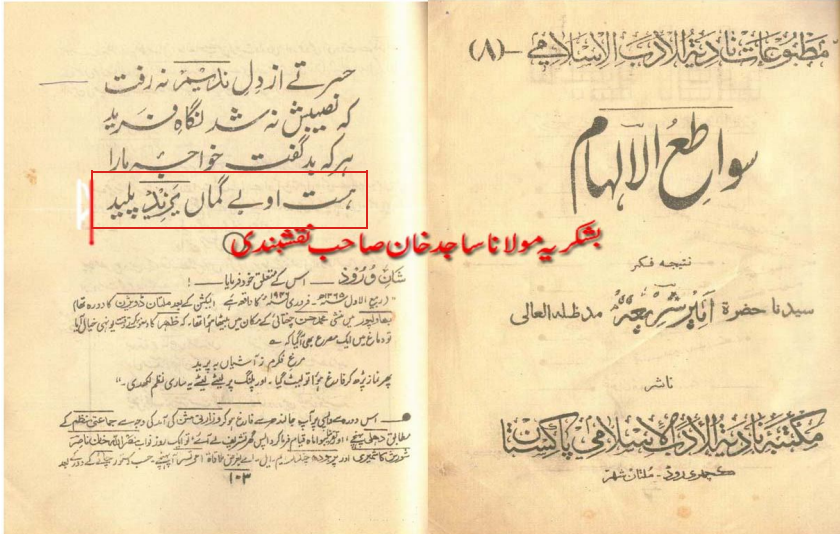 مطبوعات نادیۃ الادب الاسلامی - (۸)
سواطع الالہام
نتیجہ فکر
سیدنا حضرۃ امیر شریعت مدظلہ العالی
ناشر
مکتبۃ نادیۃ الادب الاسلامی پاکستان
کچہری روڈ - ملتان شہر
حسرتے از دل ندیم نہ رفت
کہ نصیبش نہ شد نگاہ فرید
ہر کہ بد گفت خواجہ مارا
ہست او بے گماں یزید پلید
بشکریہ مولانا ساجد خان صاحب نقشبندی
شان ورود - اس کے متعلق خود فرمایا - !
" (ربیع الاول ۱۳۶۵ھ - فروری ۱۹۴۶ء کا واقعہ ہے) الیکشن کے بعد ملتان ڈویژن کا دورہ تھا
بھاولپور میں منشی محمد حسن چغتائی کے مکان میں بیٹھا ہوا تھا۔ کہ ظہر کا وضو کرتے ہوئے یونہی خیال آیا
تو دماغ میں ایک مصرع بھی آگیا کہ ے
مرغ فکرم ز آشیاں بہ پرید
پھر نماز پڑھ کر فارغ ہوا تو لیٹ گیا۔ اور پلنگ پر لیٹے لیٹے یہ ساری نظم لکھدی۔"
اس دورہ سے واپسی پر آپ جالندھر سے فارغ ہو کر وزارتی مشن کی آمد کی وجہ سے جماعتی نظم کے
مطابق دہلی پہنچے، اور قیام فرما کر واپس گھر تشریف لے آئے تو ایک روز نواب نصراللہ خان ناصر
شورش کاشمیری اور
۱۰۳